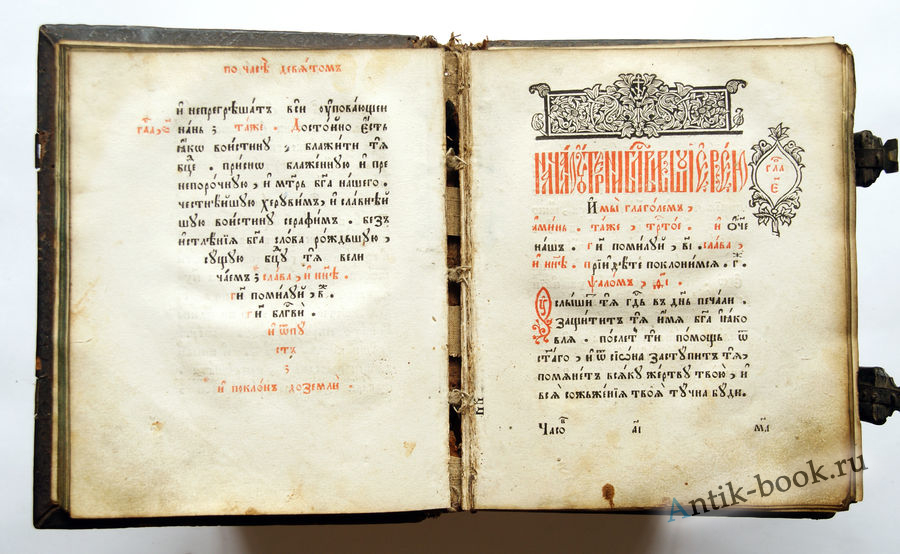 по часѣ̀ девѧ́томъ
и҆ непрегрѣша́тъ вси̑ ᲂу҆пова́ющеи
гла̀, є҃
нань ⁏ та́же. Досто́йно є҆́сть
ꙗ҆́кѡ вои́стинꙋ, блажи́ти тѧ̀
бцⷣе. при́снѡ блаже́ннꙋю и҆ пре
непоро́чнꙋю, и҆ мт҃рь бг҃а на́шего.
честнѣ́йшꙋю херꙋви́мъ, и҆ сла́внѣй
шꙋю вои́стинꙋ серафи́мъ. безъ
и҆стлѣ́нїѧ бг҃а сло́ва ро́ждьшꙋю,
сꙋ́щꙋю бцⷣꙋ тѧ̀ вели
ча́емъ ⁏ сла́ва, и҆ ны́нѣ.
гⷭ҇и поми́лꙋй, в҃.
гⷭ҇и бл҃гвѝ.
и҆ ѿпꙋ
стъ
⁏
и҆ покло́нъ до землѝ.
И҆ мы̀ глаго́лемъ,
а҆ми́нь. та́же, трⷭ҇то́е. и҆ ѻ҆́ч҃е
на́шъ. гⷭ҇и поми́лꙋй, в҃і. сла́ва,
и҆ ны́нѣ. прїиди́те поклони́мсѧ. г҃.
гла̀
є҃
ѱало́мъ, ѳ҃і
Оу҆слы́шитъ тѧ̀ гдⷭ҇ь въ де́нь печа́ли.
защи́титъ тѧ̀ и҆́мѧ бг҃а і҆а́кѡ
влѧ. по́слетъ тѝ по́мощь ѿ
ст҃а́гѡ, и҆ ѿ сїѡ́на застꙋ́питъ тѧ̀,
помѧне́тъ всѧ́кꙋ же́ртвꙋ твою̀, и҆
всѧ̀ сожьже́нїѧ твоѧ̀ тꙋ́чна бꙋ́ди.
Часоⷡ
а҃і
м҃л
Antik-book.ru